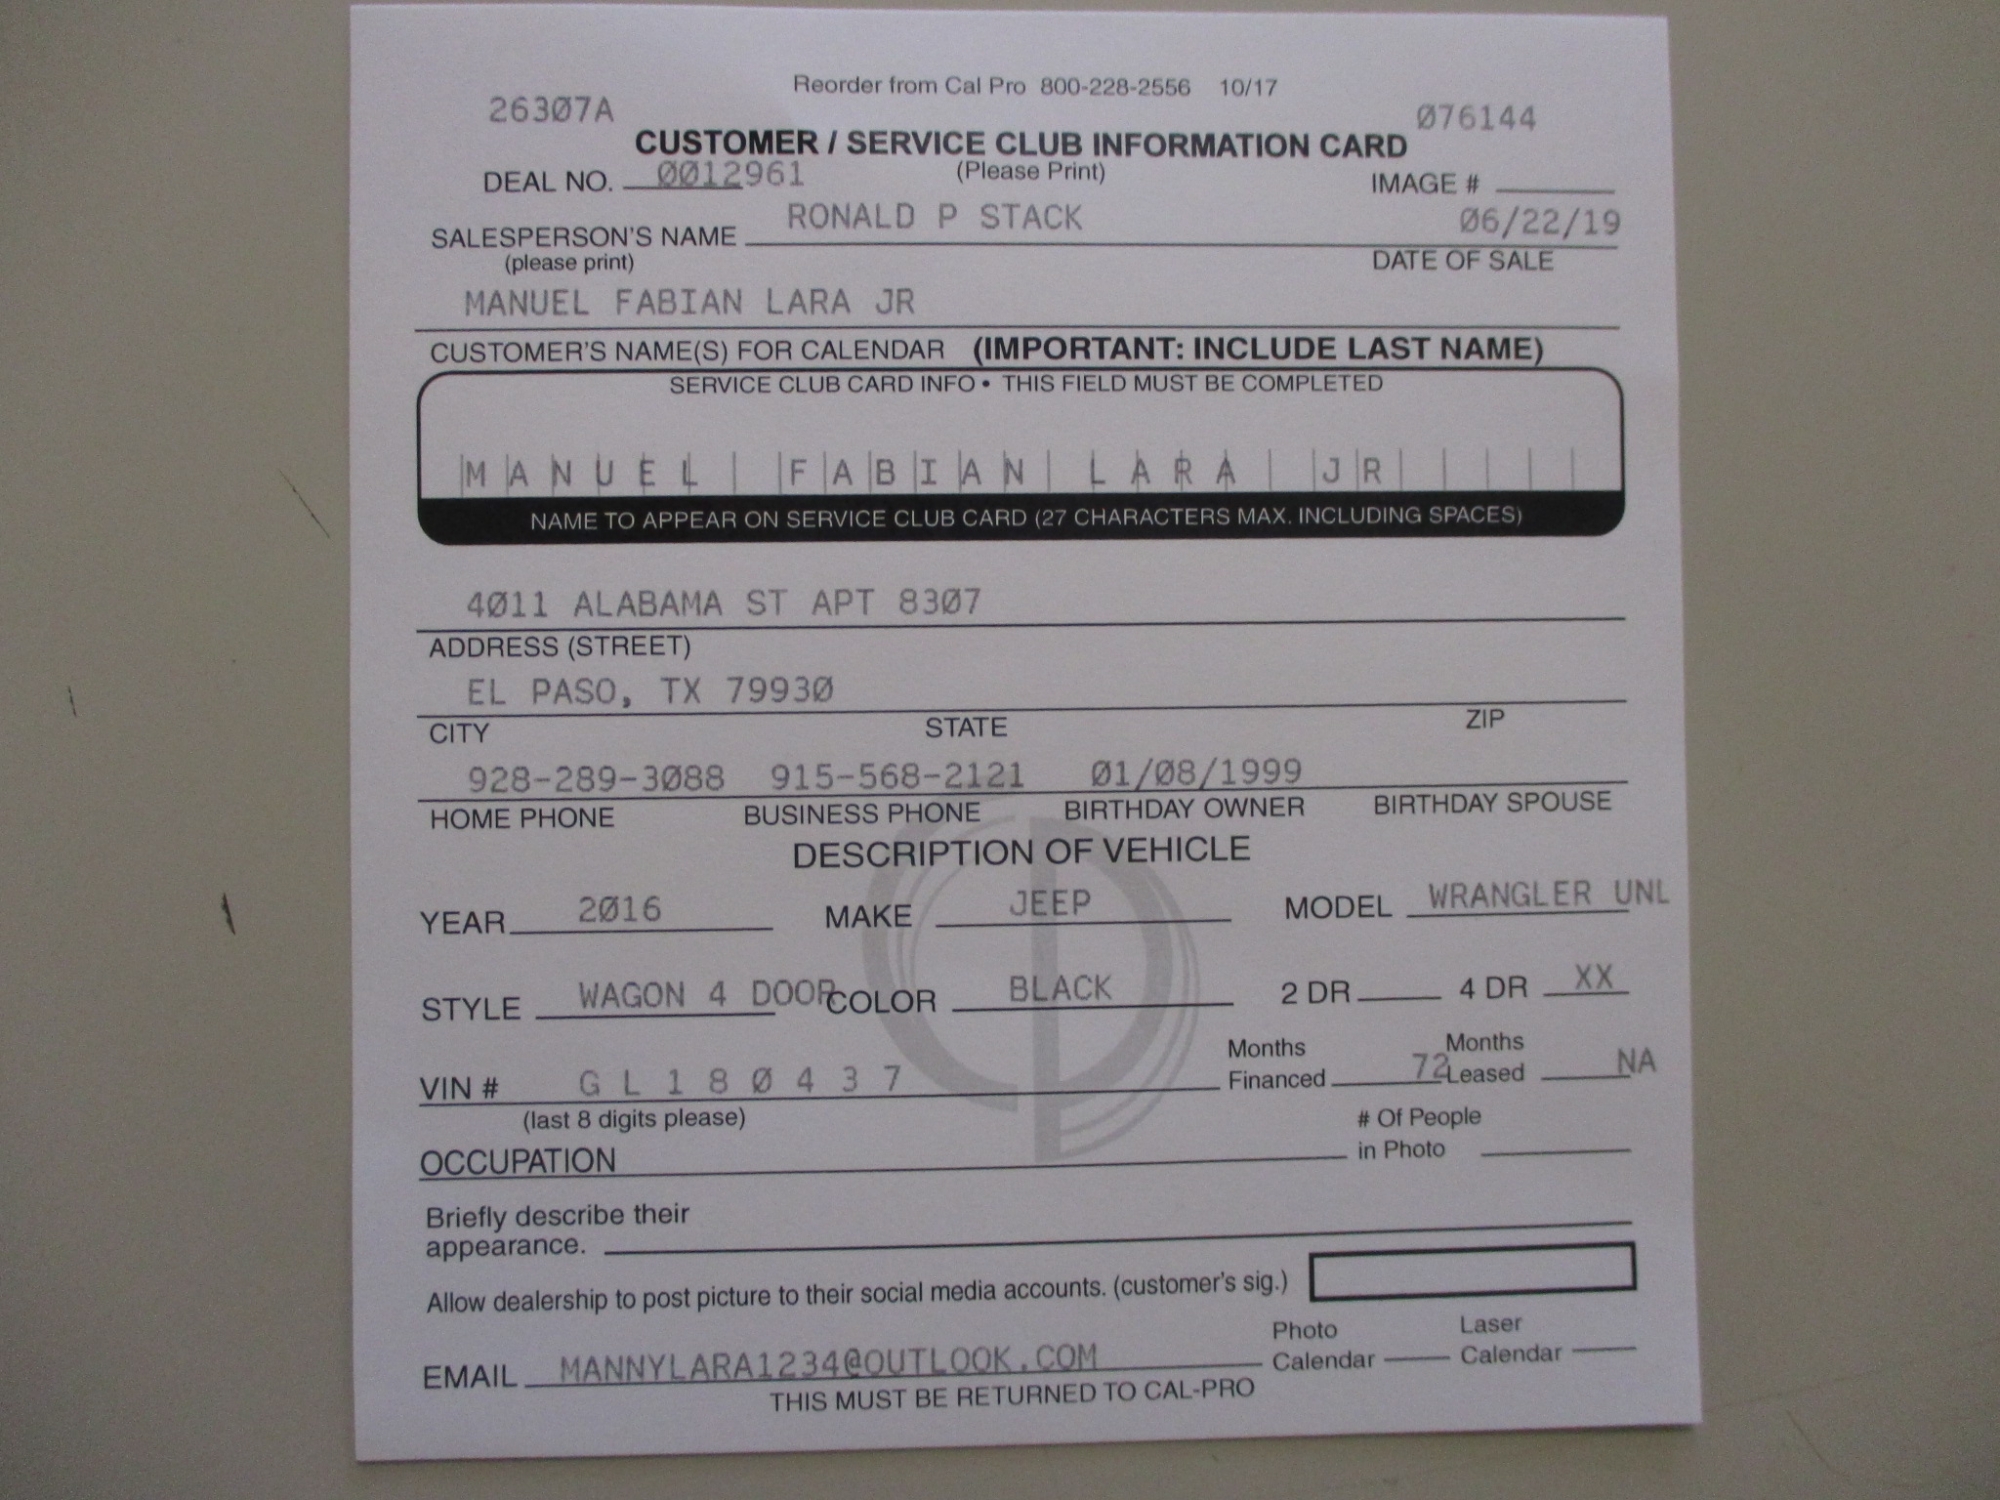 Reorder from Cal Pro 800-228-2556 10/17
26307A 076144
CUSTOMER / SERVICE CLUB INFORMATION CARD
DEAL NO. 0012961 (Please Print) IMAGE #
SALESPERSON'S NAME RONALD P STACK 06/22/19
(please print) DATE OF SALE
MANUEL FABIAN LARA JR
CUSTOMER'S NAME(S) FOR CALENDAR (IMPORTANT: INCLUDE LAST NAME)
SERVICE CLUB CARD INFO • THIS FIELD MUST BE COMPLETED
MANUEL FABIAN LARA JR
NAME TO APPEAR ON SERVICE CLUB CARD (27 CHARACTERS MAX. INCLUDING SPACES)
4011 ALABAMA ST APT 8307
ADDRESS (STREET)
EL PASO, TX 79930
CITY STATE ZIP
928-289-3088 915-568-2121 01/08/1999
HOME PHONE BUSINESS PHONE BIRTHDAY OWNER BIRTHDAY SPOUSE
DESCRIPTION OF VEHICLE
YEAR 2016 MAKE JEEP MODEL WRANGLER UNL
STYLE WAGON 4 DOOR COLOR BLACK 2 DR 4 DR XX
VIN # G L 1 8 0 4 3 7 Months Financed 72 Months Leased NA
(last 8 digits please)
OCCUPATION # Of People in Photo
Briefly describe their
appearance.
Allow dealership to post picture to their social media accounts. (customer's sig.)
EMAIL MANNYLARA1234@OUTLOOK.COM Photo Calendar Laser Calendar
THIS MUST BE RETURNED TO CAL-PRO